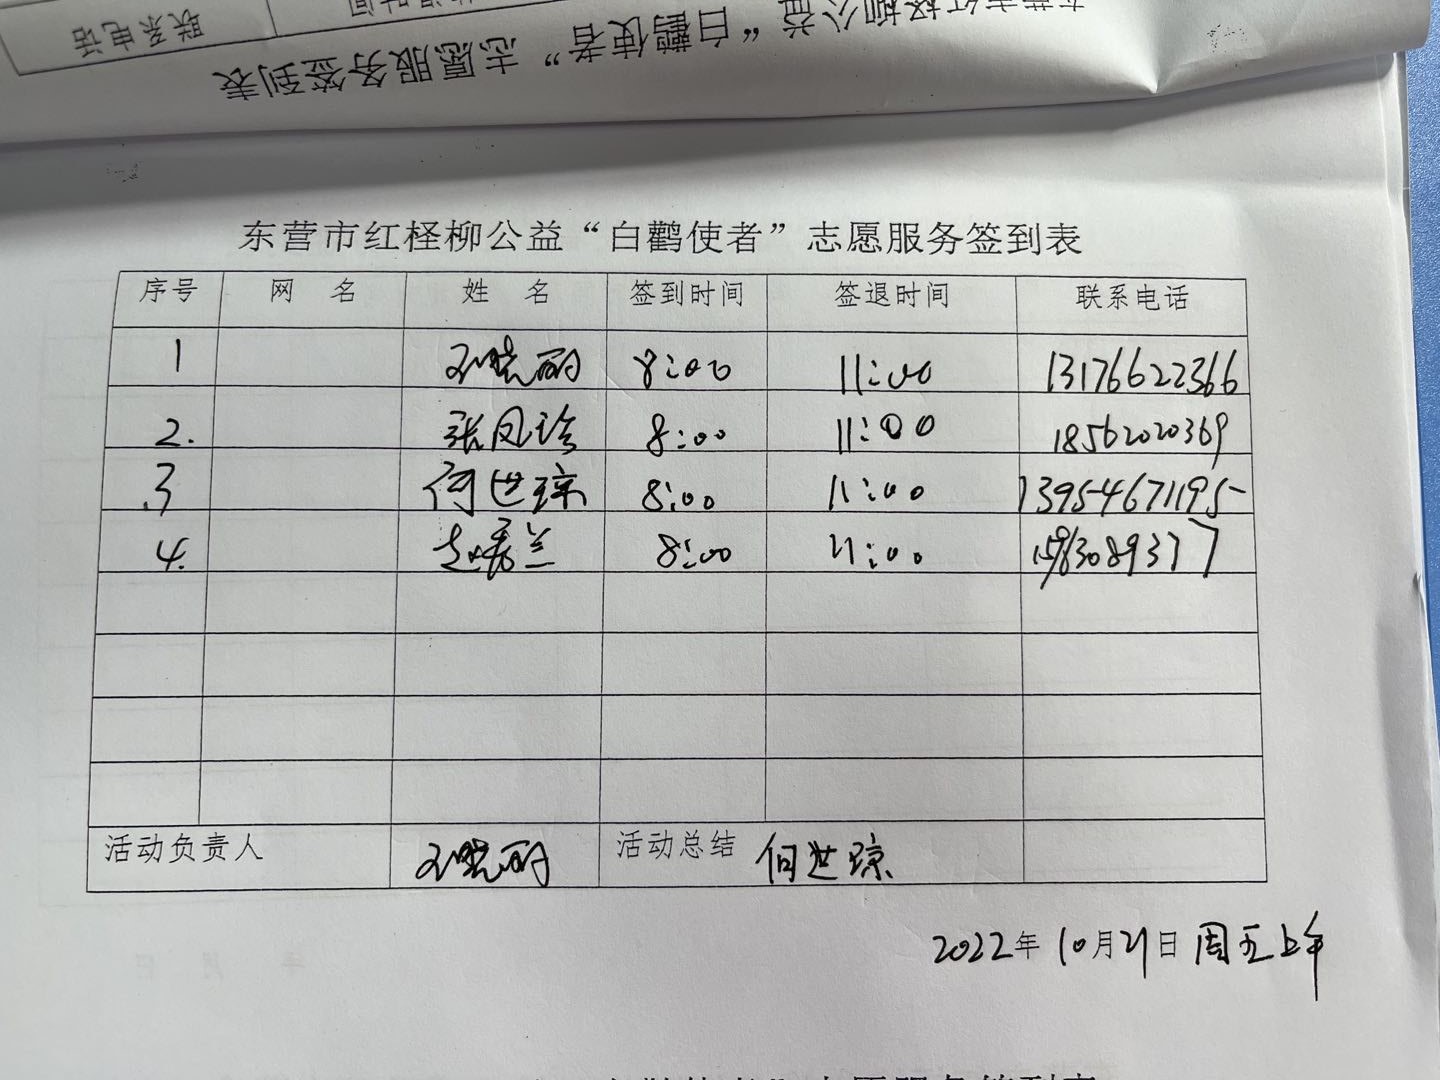 联系电话
东营市红柽柳公益“白鹳使者”志愿服务签到表
东营市红柽柳公益“白鹳使者”志愿服务签到表
序号 网 名 姓 名 签到时间 签退时间 联系电话
1 王晓丽 8:00 11:00 13176622366
2. 张凤珍 8:00 11:00 18562020369
3 何世琼 8:00 11:00 13954671195
4. 兰 8:00 11:00
活动负责人 王晓丽 活动总结 何世琼
2022年10月21日 周五上午